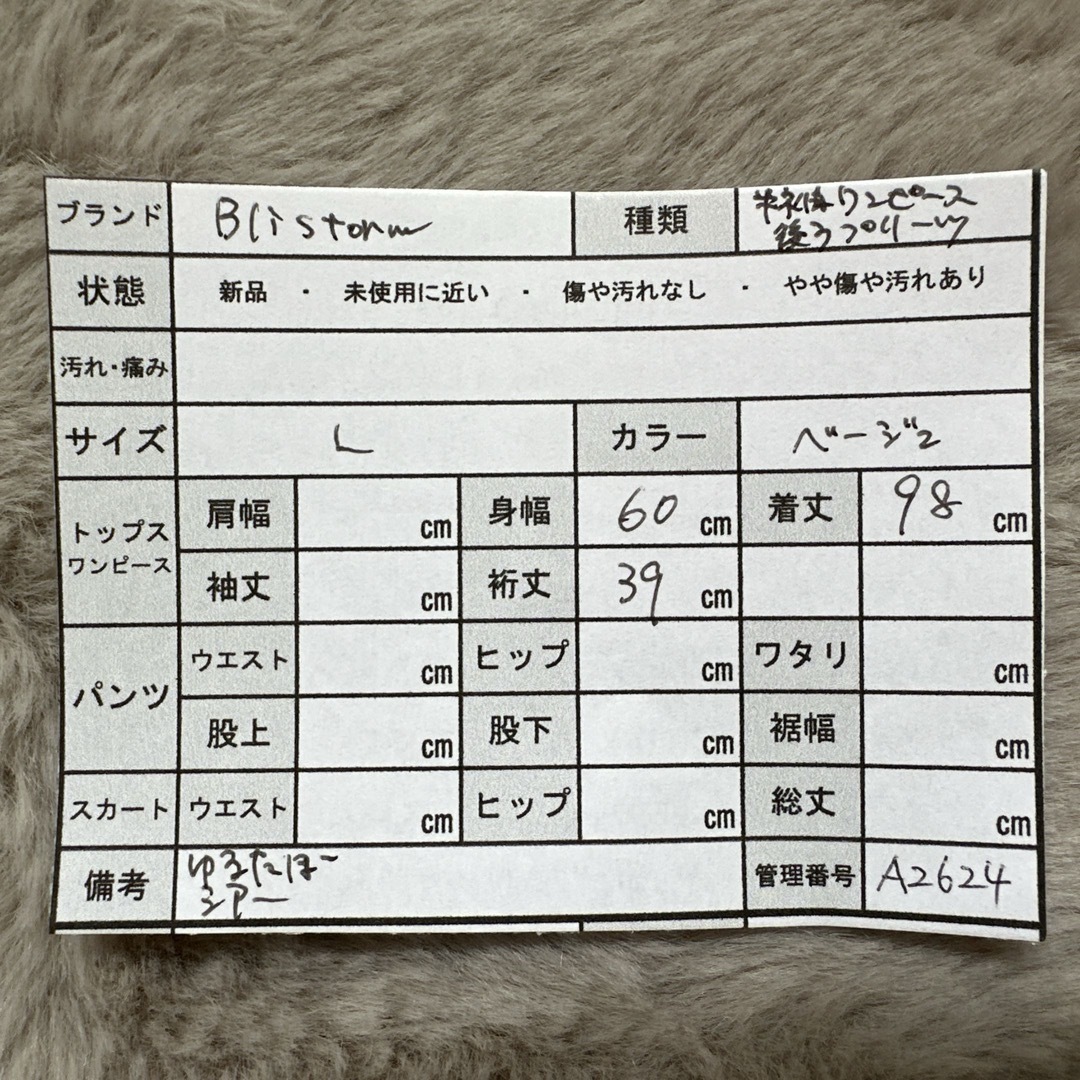 ブランド Blistorm 種類 半袖ワンピース
後ろプリーツ
状態 新品 ・ 未使用に近い ・ 傷や汚れなし ・ やや傷や汚れあり
汚れ・痛み
サイズ L カラー ベージュ
トップス
ワンピース
肩幅 cm 身幅 60 cm 着丈 98 cm
袖丈 cm 裄丈 39 cm
パンツ
ウエスト cm ヒップ cm ワタリ cm
股上 cm 股下 cm 裾幅 cm
スカート ウエスト cm ヒップ cm 総丈 cm
備考 ゆるたぼー
シアー
管理番号 A2624